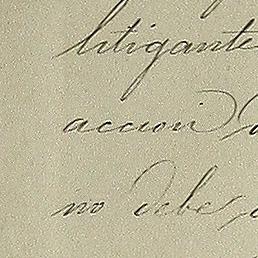 litigante
accion
no debe